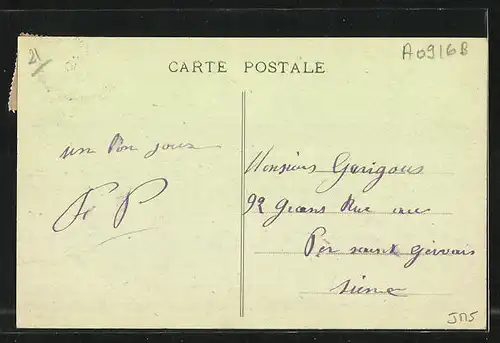 21
A0916B
CARTE POSTALE
un Bon jour
P P
Monsieur Garigous
92 Grans Rue
Pré saint Gervais
Seine
JM5